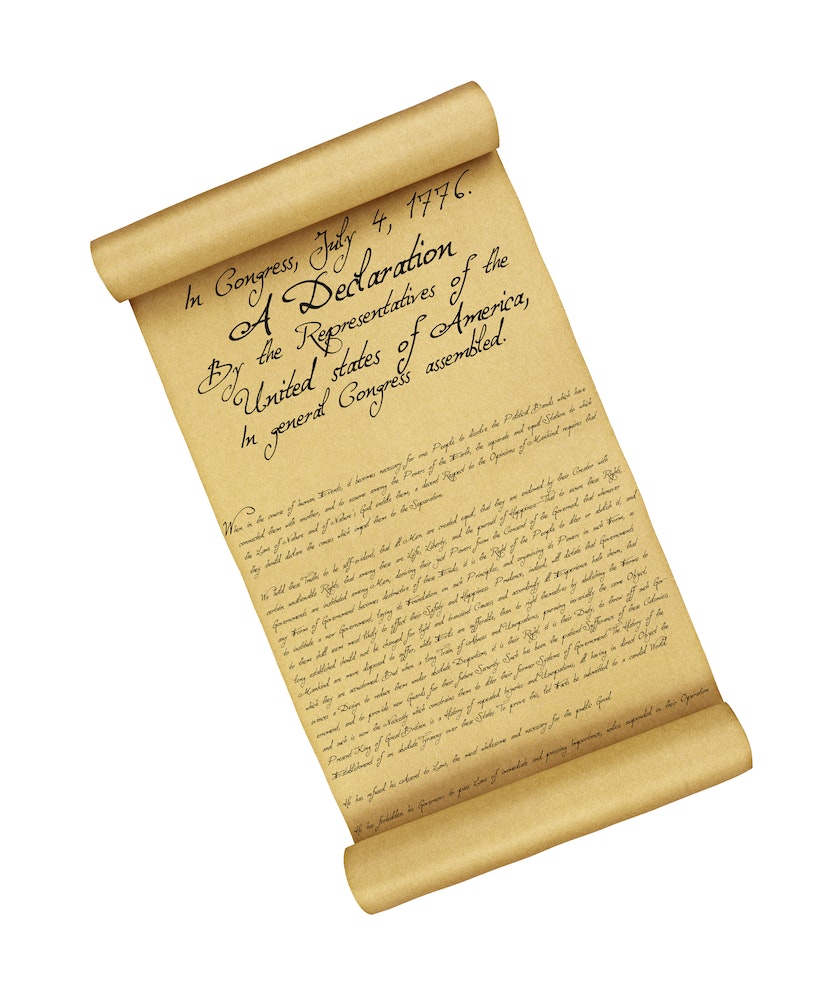 In Congress, July 4, 1776.
A Declaration
By the Representatives of the
United states of America,
In general Congress assembled.
When in the course of human Events, it becomes necessary for one People to dissolve the Political Bands which have
connected them with another, and to assume among the Powers of the Earth, the separate and equal Station to which
the Laws of Nature and of Nature's God entitle them, a decent Respect to the Opinions of Mankind requires that
they should declare the causes which impel them to the Separation.
We hold these Truths to be self-evident, that all Men are created equal, that they are endowed by their Creator with
certain unalienable Rights, that among these are Life, Liberty, and the pursuit of Happiness—That to secure these Rights,
Governments are instituted among Men, deriving their just Powers from the Consent of the Governed, that whenever
any Form of Government becomes destructive of these Ends, it is the Right of the People to alter or abolish it, and
to institute a new Government, laying its Foundation on such Principles, and organizing its Powers in such Form, as
to them shall seem most likely to effect their Safety and Happiness. Prudence, indeed, will dictate that Governments
long established should not be changed for light and transient Causes; and accordingly all Experience hath shewn, that
Mankind are more disposed to suffer, while Evils are sufferable, than to right themselves by abolishing the Forms to
which they are accustomed. But when a long Train of Abuses and Usurpations, pursuing invariably the same Object,
evinces a Design to reduce them under absolute Despotism, it is their Right, it is their Duty, to throw off such Gov-
ernment, and to provide new Guards for their future Security. Such has been the patient Sufferance of these Colonies;
and such is now the Necessity which constrains them to alter their former Systems of Government. The History of the
Present King of Great-Britain is a History of repeated Injuries and Usurpations, all having in direct Object the
Establishment of an absolute Tyranny over these States. To prove this, let Facts be submitted to a candid World.
He has refused his Assent to Laws, the most wholesome and necessary for the public Good.
He has forbidden his Governors to pass Laws of immediate and pressing Importance, unless suspended in their Operation